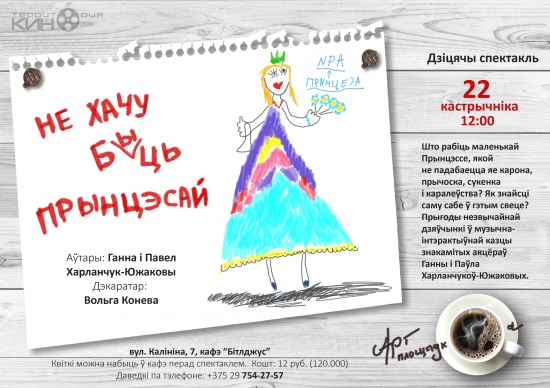 КИН
Дзіцячы спектакль
22
кастрычніка
12:00
НЕ ХАЧУ
БЫЦЬ
ПРЫНЦЭСАЙ
ПРА
ПРИНЦЕЗА
Што рабіць маленькай
Прынцэссе, якой
не падабаецца яе карона,
прычоска, сукенка
і каралеўства? Як знайсці
саму сабе ў гэтым свеце?
Прыгоды незвычайнай
дзяўчынкі ў музычна-
інтэрактыўнай казцы
знакамітых акцёраў
Ганны і Паўла
Харланчукоў-Южаковых.
Аўтары: Ганна і Павел
Харланчук-Южаковы
Дэкаратар:
Вольга Конева
Арт
площадка
вул. Калініна, 7, кафэ “Бітлджус”
Квіткі можна набыць ў кафэ перад спектаклем. Кошт: 12 руб. (120.000)
Даведкі па тэлефоне: +375 29 754-27-57